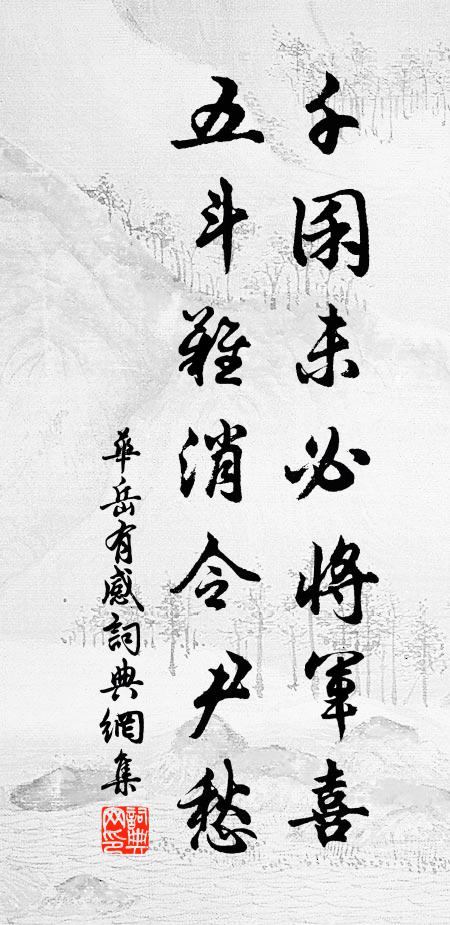 千囷未必將軍喜
五斗難消令尹愁
華岳有感詞典網集
詞典网印